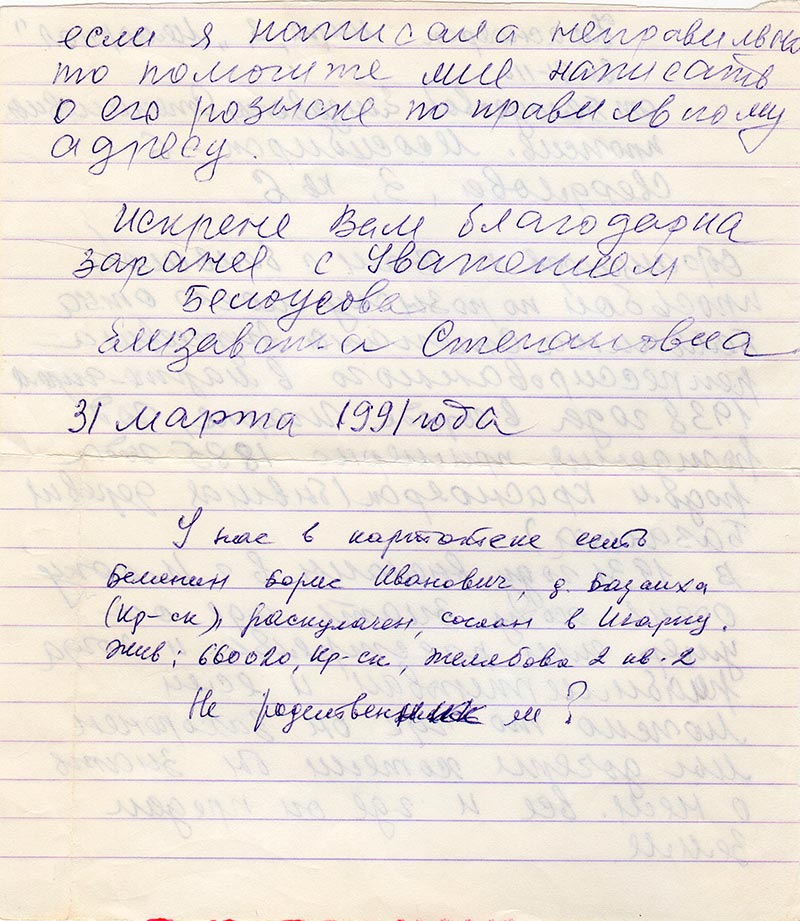 если я написала неправильно
то помогите мне написать
о его розыске по правильному
адресу.
Искрене Вам благодарна
заранее с Уважением
Белоусова
Елизавета Степановна
31 марта 1991 года
У нас в картотеке есть
Белянин Борис Иванович, д. Базаиха
(Кр-ск), раскулачен, сослан в Игарку.
Жив; 660020, Кр-ск, Желябова 2 кв. 2
Не родственник ли?